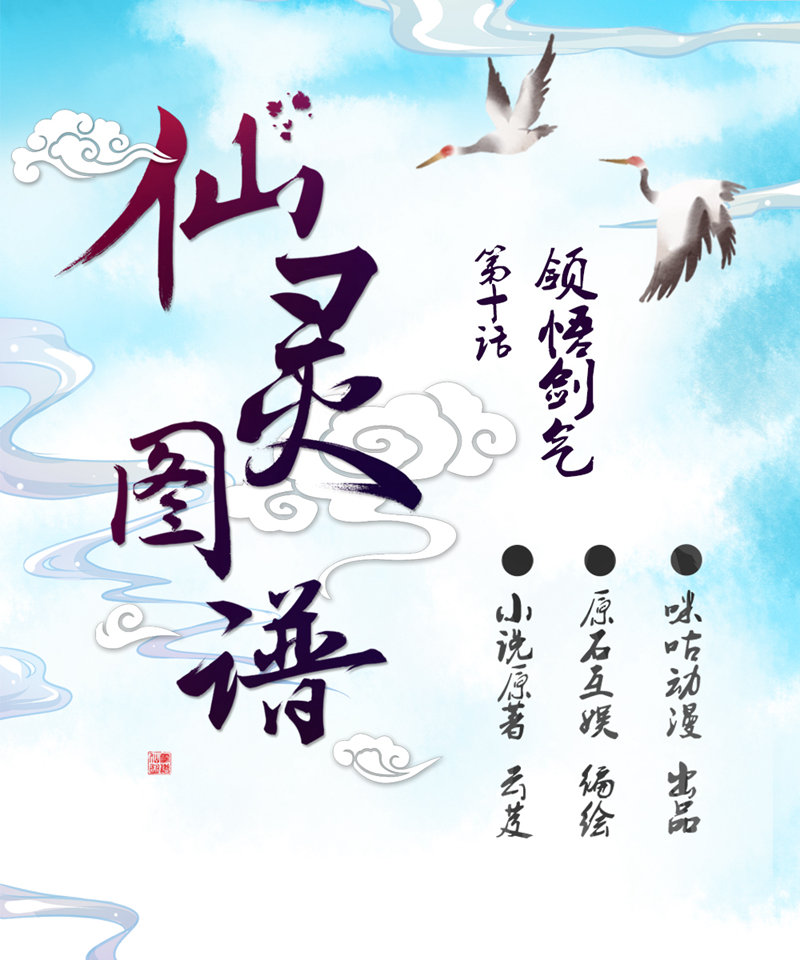 仙灵图谱
第十话
领悟剑气
咪咕动漫 出品
原石互娱 编绘
小说原著 云芨